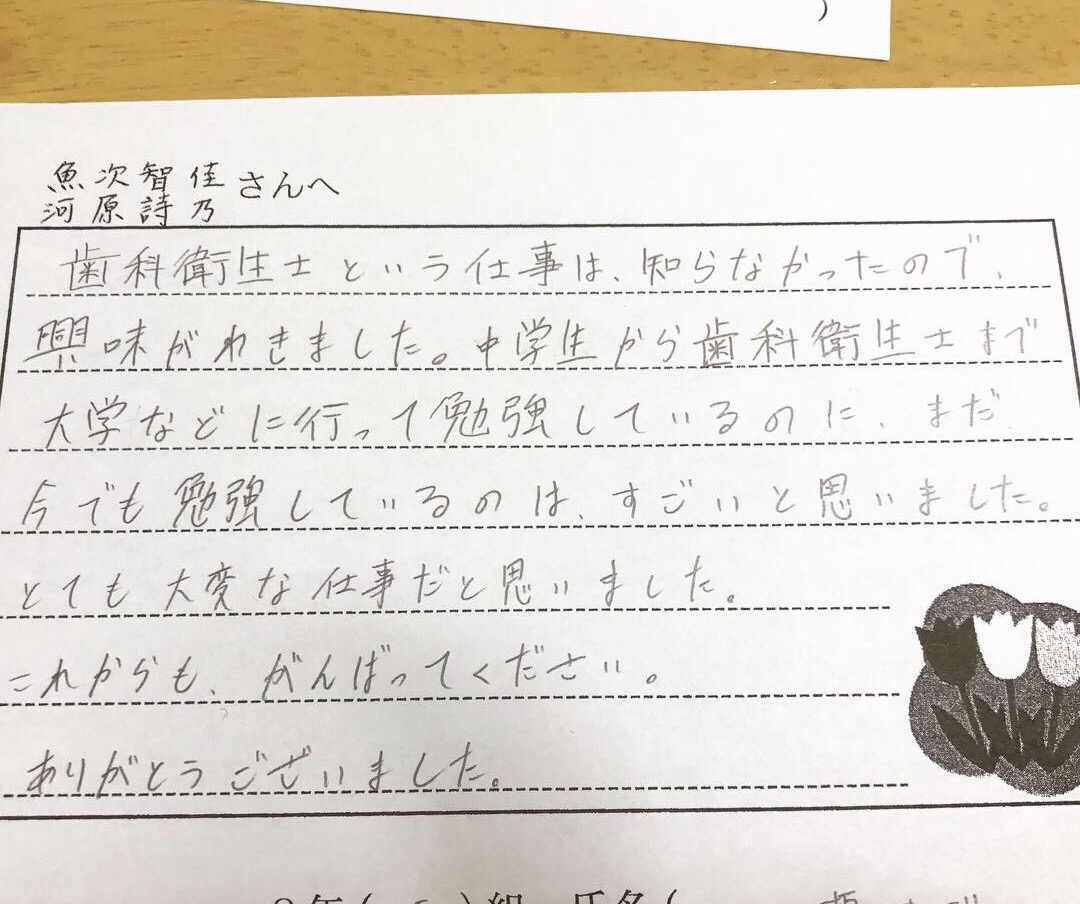 魚次智佳
河原詩乃 さんへ
歯科衛生士という仕事は、知らなかったので、
興味がわきました。中学生から歯科衛生士まで
大学などに行って勉強しているのに、まだ
今でも勉強しているのは、すごいと思いました。
とても大変な仕事だと思いました。
これからも、がんばってください。
ありがとうございました。